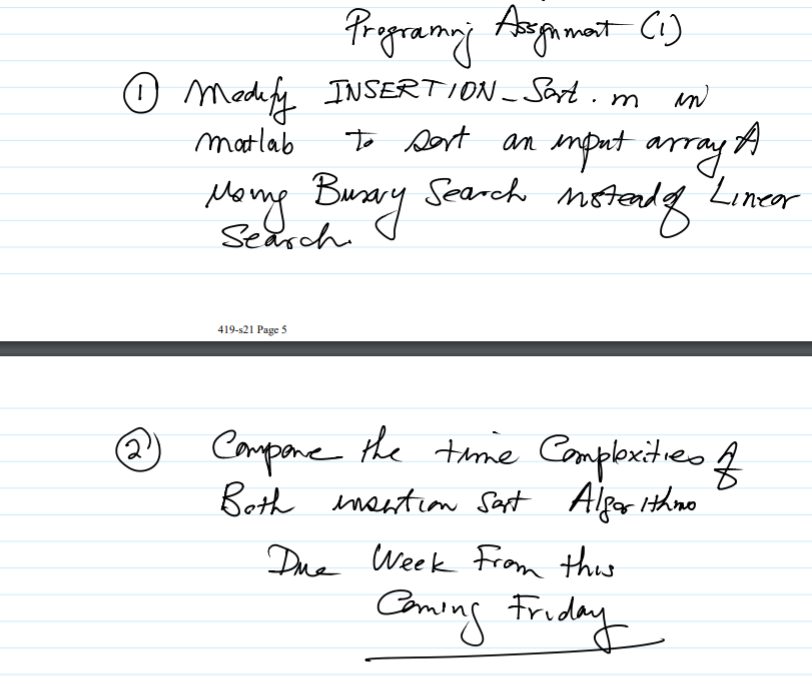 Programnj Assgnment (1)
① Modify INSERTION_Sort.m in
matlab to sort an input array A
Using Binary Search instead of Linear
Search.
419-s21 Page 5
② Compare the time Complexities of
Both insertion sort Algorithms
Due Week From this
Coming Friday